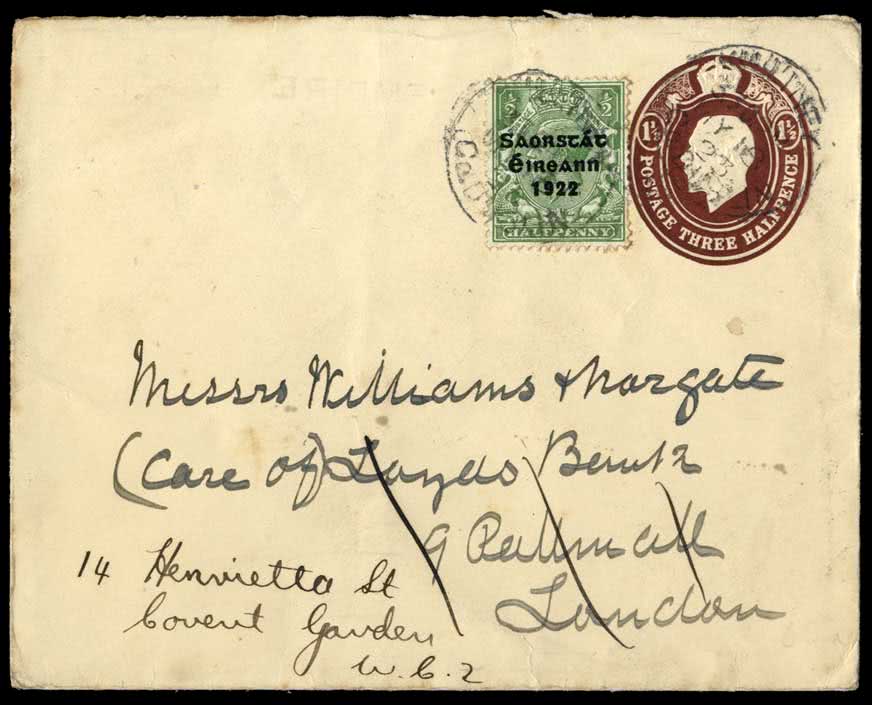 ½ ½
SAORSTÁT
ÉIREANN
1922
HALFPENNY
1½ 1½
POSTAGE THREE HALFPENCE
Messrs Williams & Norgate
(Care of) Loyds Bank
9 Pallmall
London
14 Henrietta St
Covent Garden
W.C.2